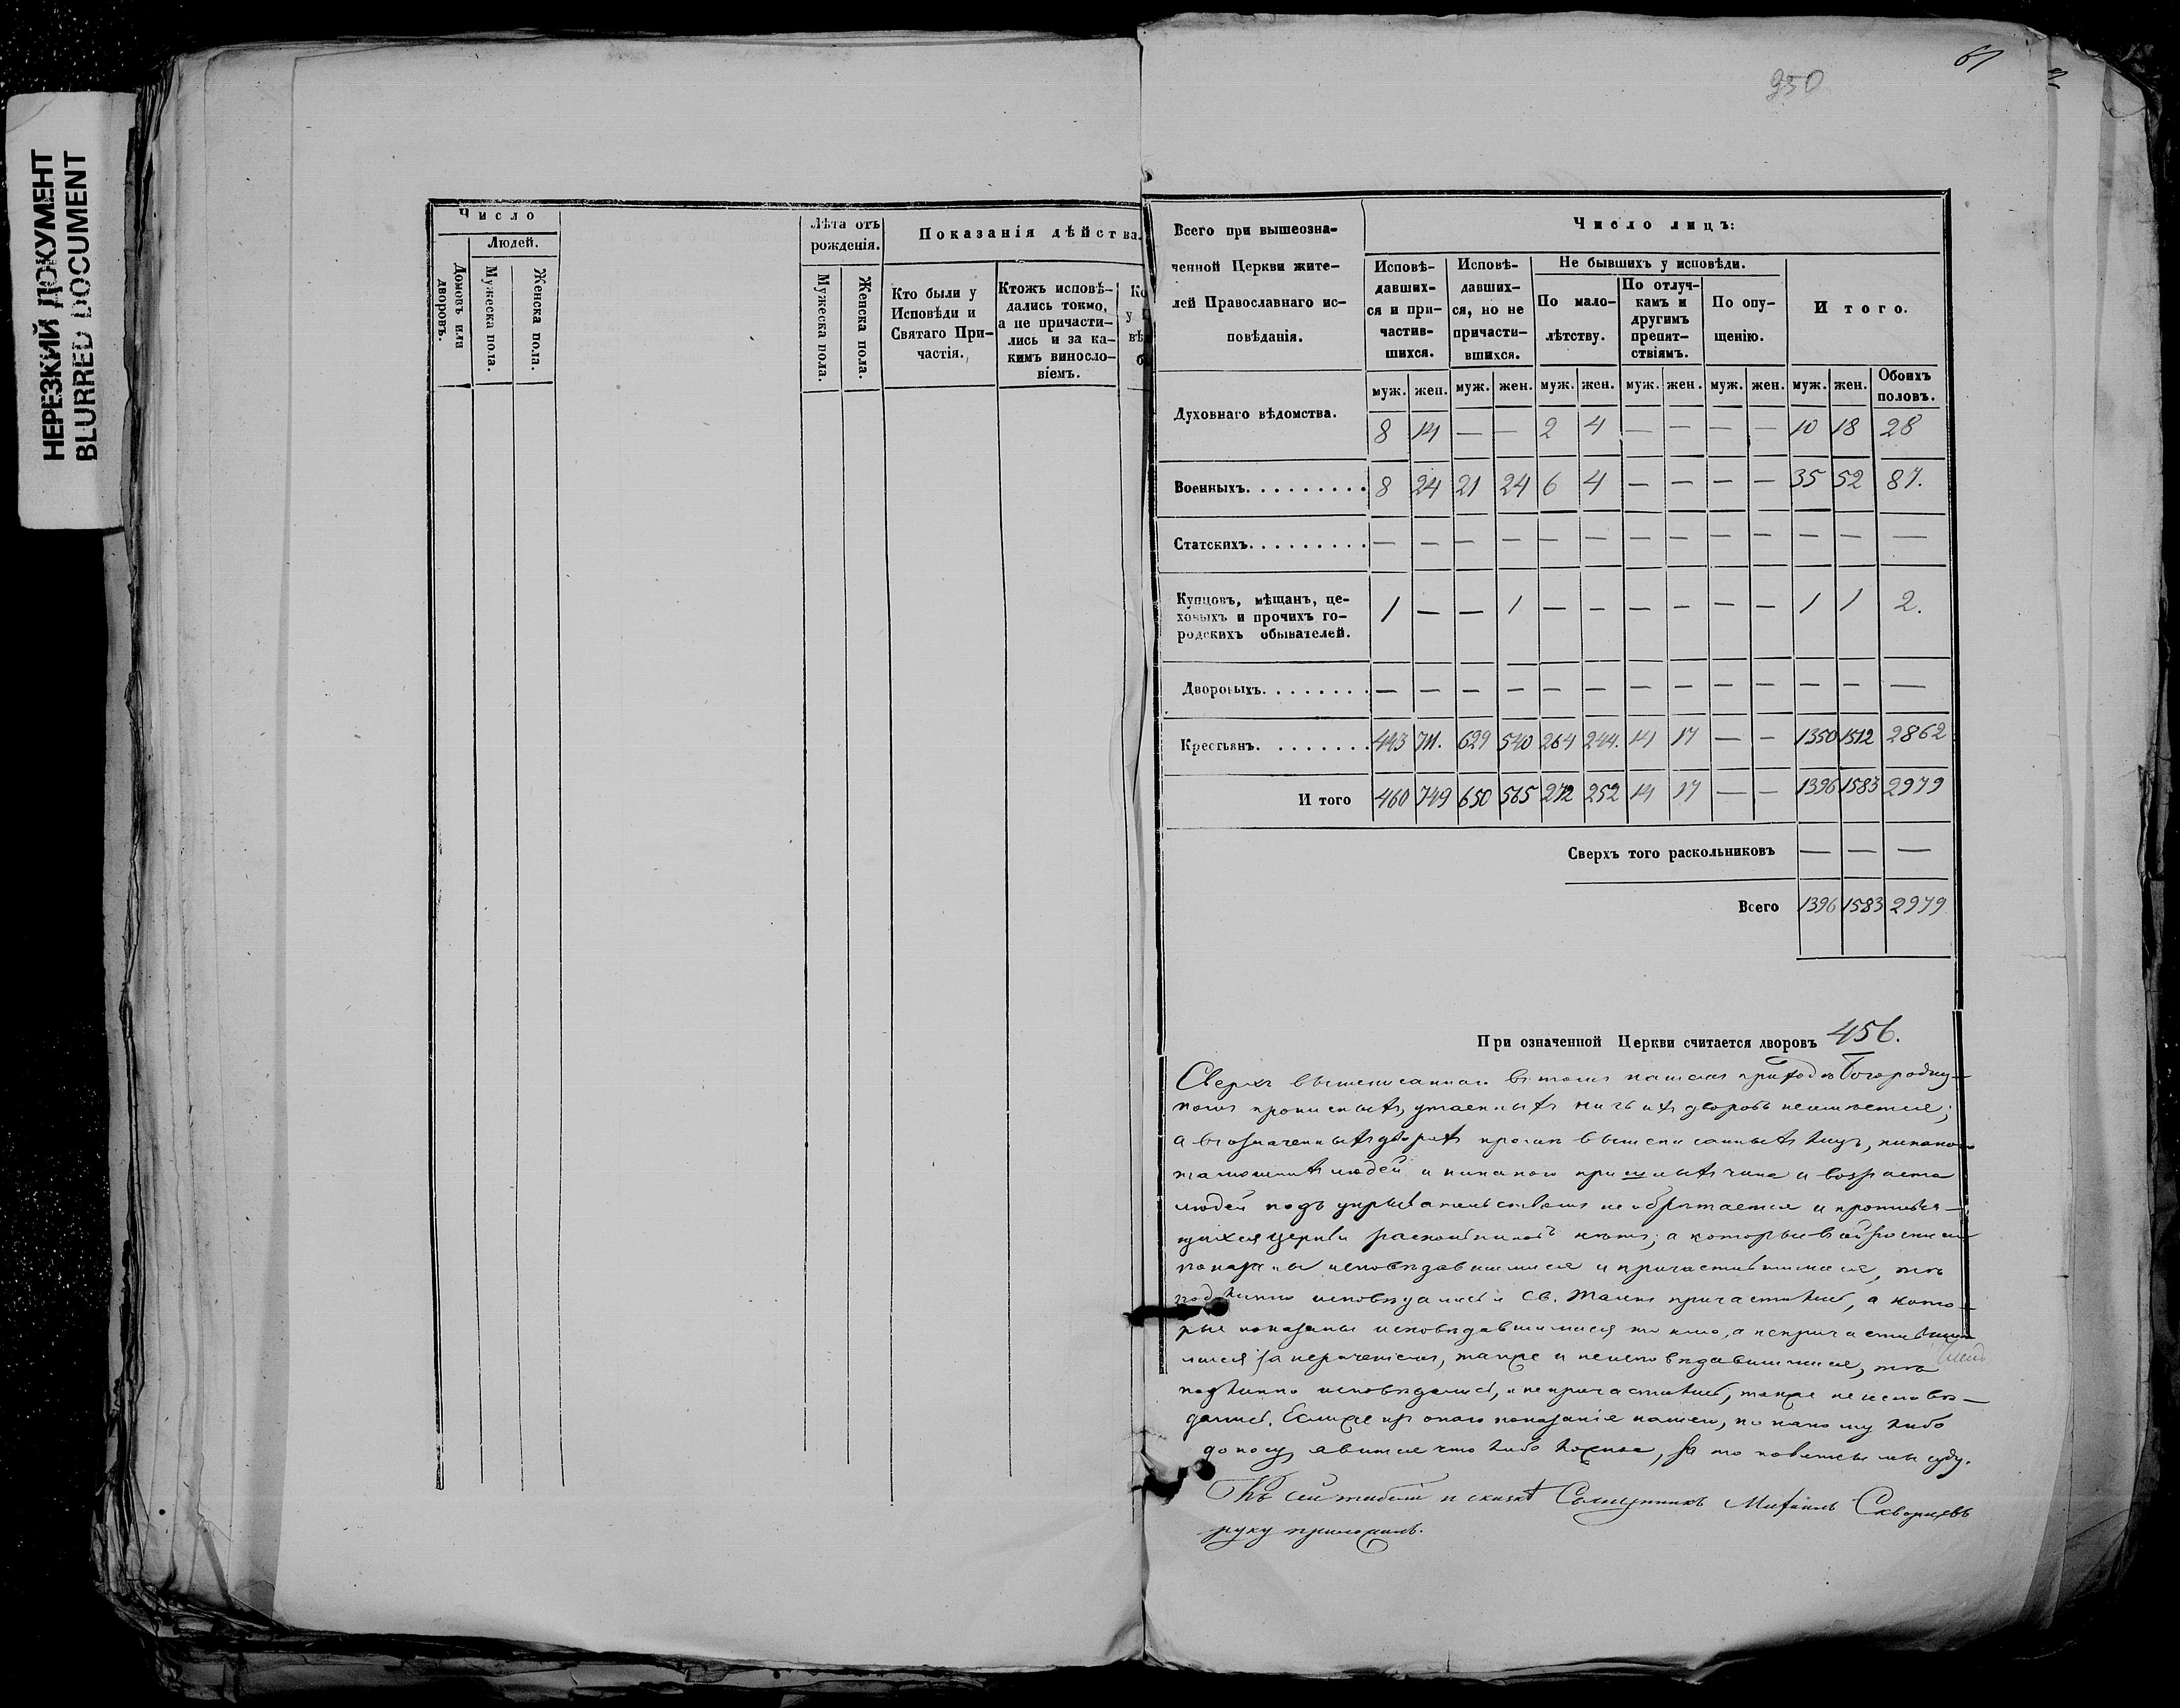 НЕРЕЗКИЙ ДОКУМЕНТ
BLURRED DOCUMENT
Число
Людей.
Домовъ или дворовъ.
Мужеска пола.
Женска пола.
Лѣта отъ рожденія.
Мужеска пола.
Женска пола.
Показанія дѣйства.
Кто были у
Исповѣди и
Святаго При-
частія.
Ктожъ исповѣ-
дались токмо,
а не причасти-
лись и за ка-
кимъ винослo-
віемъ.
61
950
Всего при вышеозна-
ченной Церкви жите-
лей Православнаго ис-
повѣданія.
Число лицъ:
Исповѣ-
давших-
ся и при-
частив-
шихся.
Исповѣ-
давших-
ся, но не
причасти-
вшихся.
Не бывшихъ у исповѣди.
По мало-
лѣтству.
По отлуч-
камъ и
другимъ
препят-
ствіямъ.
По опу-
щенію.
Итого.
муж. жен. муж. жен. муж. жен. муж. жен. муж. жен. муж. жен. Обоихъ половъ.
Духовнаго вѣдомства. 8 14 — — 2 4 — — — — 10 18 28
Военныхъ. 8 24 21 24 6 4 — — — — 35 52 87.
Статскихъ. — — — — — — — — — — — — —
Купцовъ, мѣщанъ, це-
ховыхъ и прочихъ го-
родскихъ обывателей. 1 — — 1 — — — — — — 1 1 2.
Дворовыхъ. — — — — — — — — — — — — —
Крестьянъ. 443 711. 629 540 264 244. 14 17 — — 1350 1512 2862
Итого 460 749 650 565 272 252 14 17 — — 1396 1583 2979
Сверхъ того раскольниковъ — — —
Всего 1396 1583 2979
При означенной Церкви считается дворовъ 456.
Сверхъ вышеписаннаго въ томъ нашемъ приходѣ Богородиц-
комъ прописныхъ, утаенныхъ ни чьихъ дворовъ неимѣется;
а въ означенныхъ дворахъ кромѣ вышеписанныхъ лицъ, никако
людей и никакого чина и возраста
людей подъ укрывательствомъ не обрѣтается и противя-
щихся церкви раскольниковъ нѣтъ; а которые въ сей росписи
показаны исповѣдавшимися и причастившимися, тѣ
подлинно исповѣдались и Св. Таинъ причастились, а кото-
рые показаны исповѣдавшимися токмо, а непричастивши
мися за нераченіемъ, также и неисповѣдавшимися, тѣ
подлинно исповѣдались, и не причастились, также не исповѣ-
дались. Если же изъ онаго показанія нашего, по какому либо
доносу явится что либо ложное, за то повинны мы суду.
Къ сей Священникъ Михаилъ Скворцевъ
руку приложилъ.